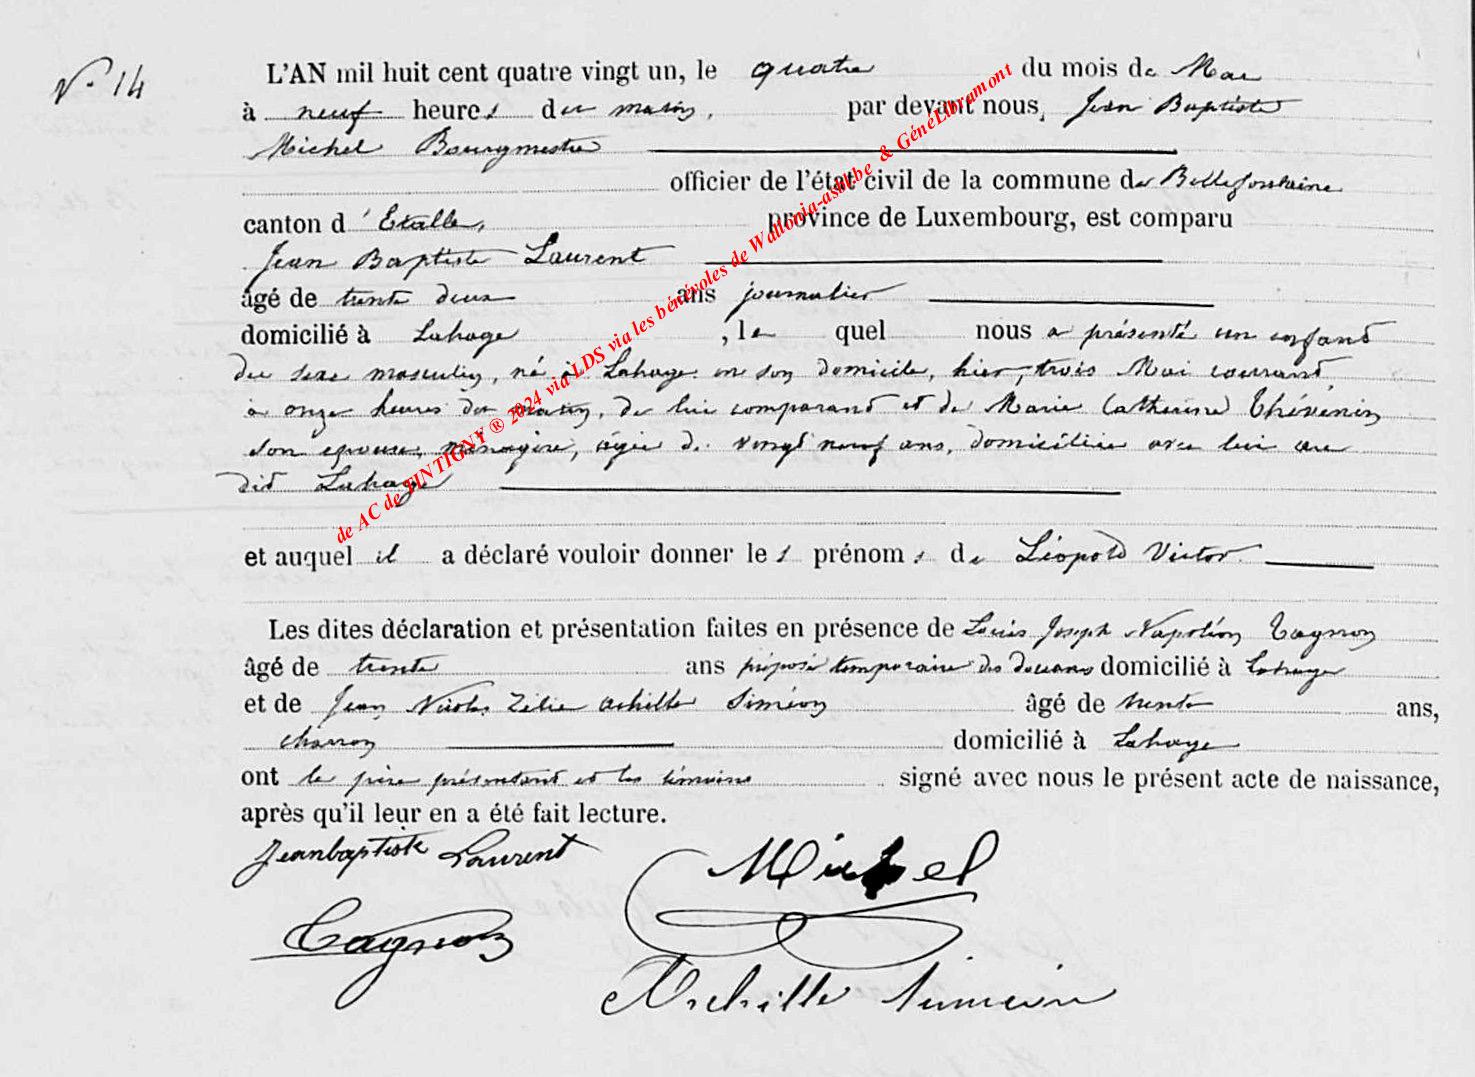 N° 14
L'AN mil huit cent quatre vingt un, le quatre du mois de Mai
à neuf heures du matin, par devant nous, Jean Baptiste
Michel Bourgmestre
officier de l'état civil de la commune de Bellefontaine
canton d'Etalle, province de Luxembourg, est comparu
Jean Baptiste Laurent
âgé de trente deux ans journalier
domicilié à Lahage, le quel nous a présenté un enfant
du sexe masculin, né à Lahage en son domicile, hier, trois Mai courant,
à onze heures du matin, de lui comparant et de Marie Catherine Thévenin
son epouse, ménagère, agée de vingt neuf ans, domiciliée avec lui au
dit Lahage
et auquel il a déclaré vouloir donner les prénoms de Léopold Victor
Les dites déclaration et présentation faites en présence de Louis Joseph Napoléon Tagnon
âgé de trente ans préposé temporaire des douanes domicilié à Lahage
et de Jean Nicolas Zélie Achille Siméon âgé de trente ans,
charron domicilié à Lahage
ont le père présentant et les témoins signé avec nous le présent acte de naissance,
après qu'il leur en a été fait lecture.
Jeanbaptiste Laurent
Michel
Tagnon
Achille Simeon
de AC de TINTIGNY ® 2024 via LDS via les bénévoles de Wallonia-asbl.be & GénéLibramont